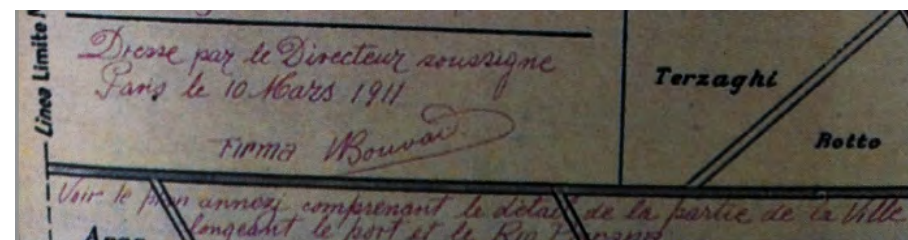 Linea Limite
Dresse par le Directeur soussigne
Paris le 10 Mars 1911
Terzaghi
Firma Bouvard
Rotto
Voir le plan annoxi comprenant le détail de la partie de la Ville
longeant le port et le Rio Parana